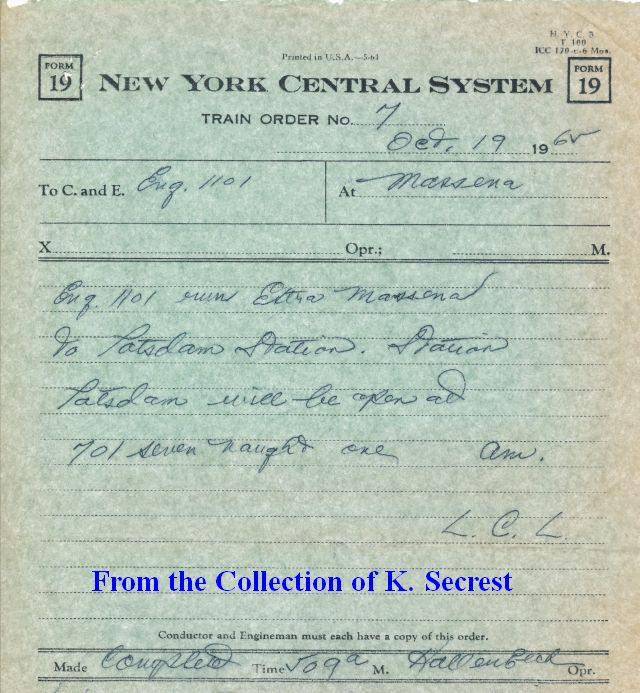 N. Y. C. S
T 100
ICC 170-c-6 Mos.
Printed in U.S.A.—5-61
FORM 19
NEW YORK CENTRAL SYSTEM
FORM 19
TRAIN ORDER No. 7
Oct. 19 196
To C. and E. Eng. 1101 At Massena
X Opr.; M.
Eng 1101 run Extra Massena
to Potsdam Station. Station
Potsdam will be open at
701 seven naught one am.
L. C. L.
From the Collection of K. Secrest
Conductor and Engineman must each have a copy of this order.
Made Complete Time 509a M. Hallenbeck Opr.